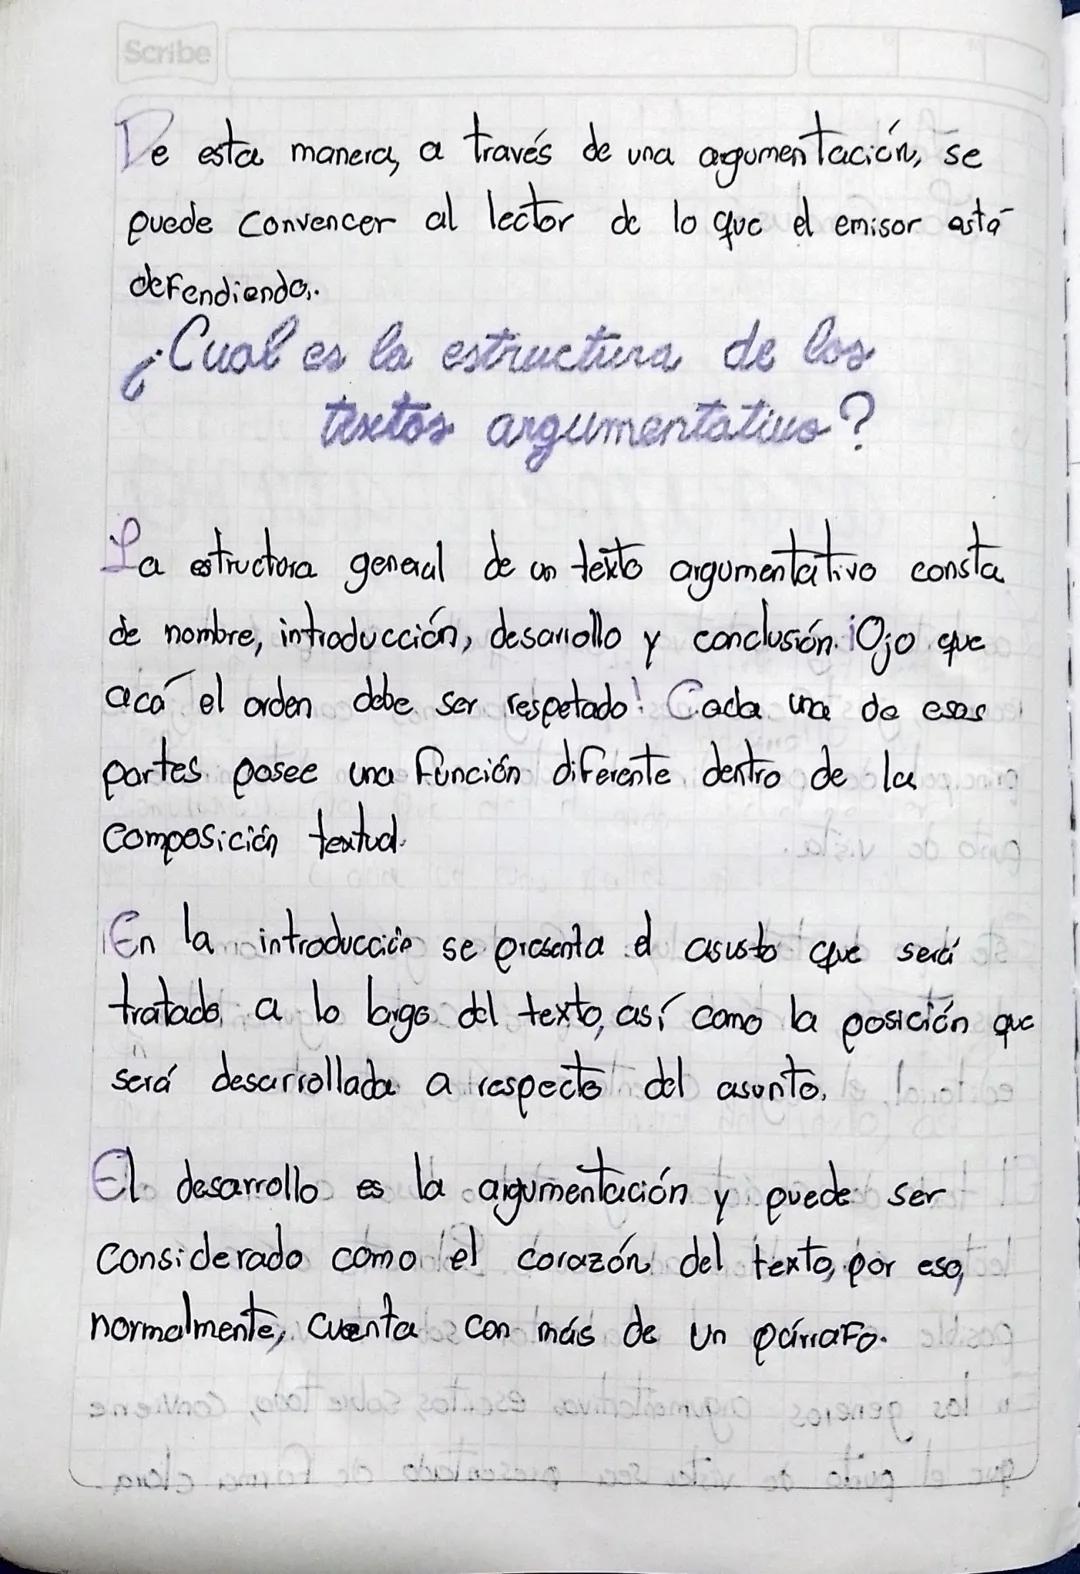 Scribe
De esta manera, a través de una argumentación, se
puede convencer al lector de lo que el emisor está
defendiendo.
¿Cual es la estructura de los
textos argumentativo?
La estructura general de un texto argumentativo consta
de nombre, introducción, desarrollo y conclusión. ¡Ojo que
acá el orden debe ser respetado! Cada una de esas
partes posee una función diferente dentro de la
composición textual.
En la introducción se presenta el asusto que será
tratado a lo largo del texto, así como la posición que
será desarrollada a respecto del asunto.
El desarrollo es la argumentación y puede ser
considerado como el corazón del texto, por eso,
normalmente, cuenta con más de un párrafo.